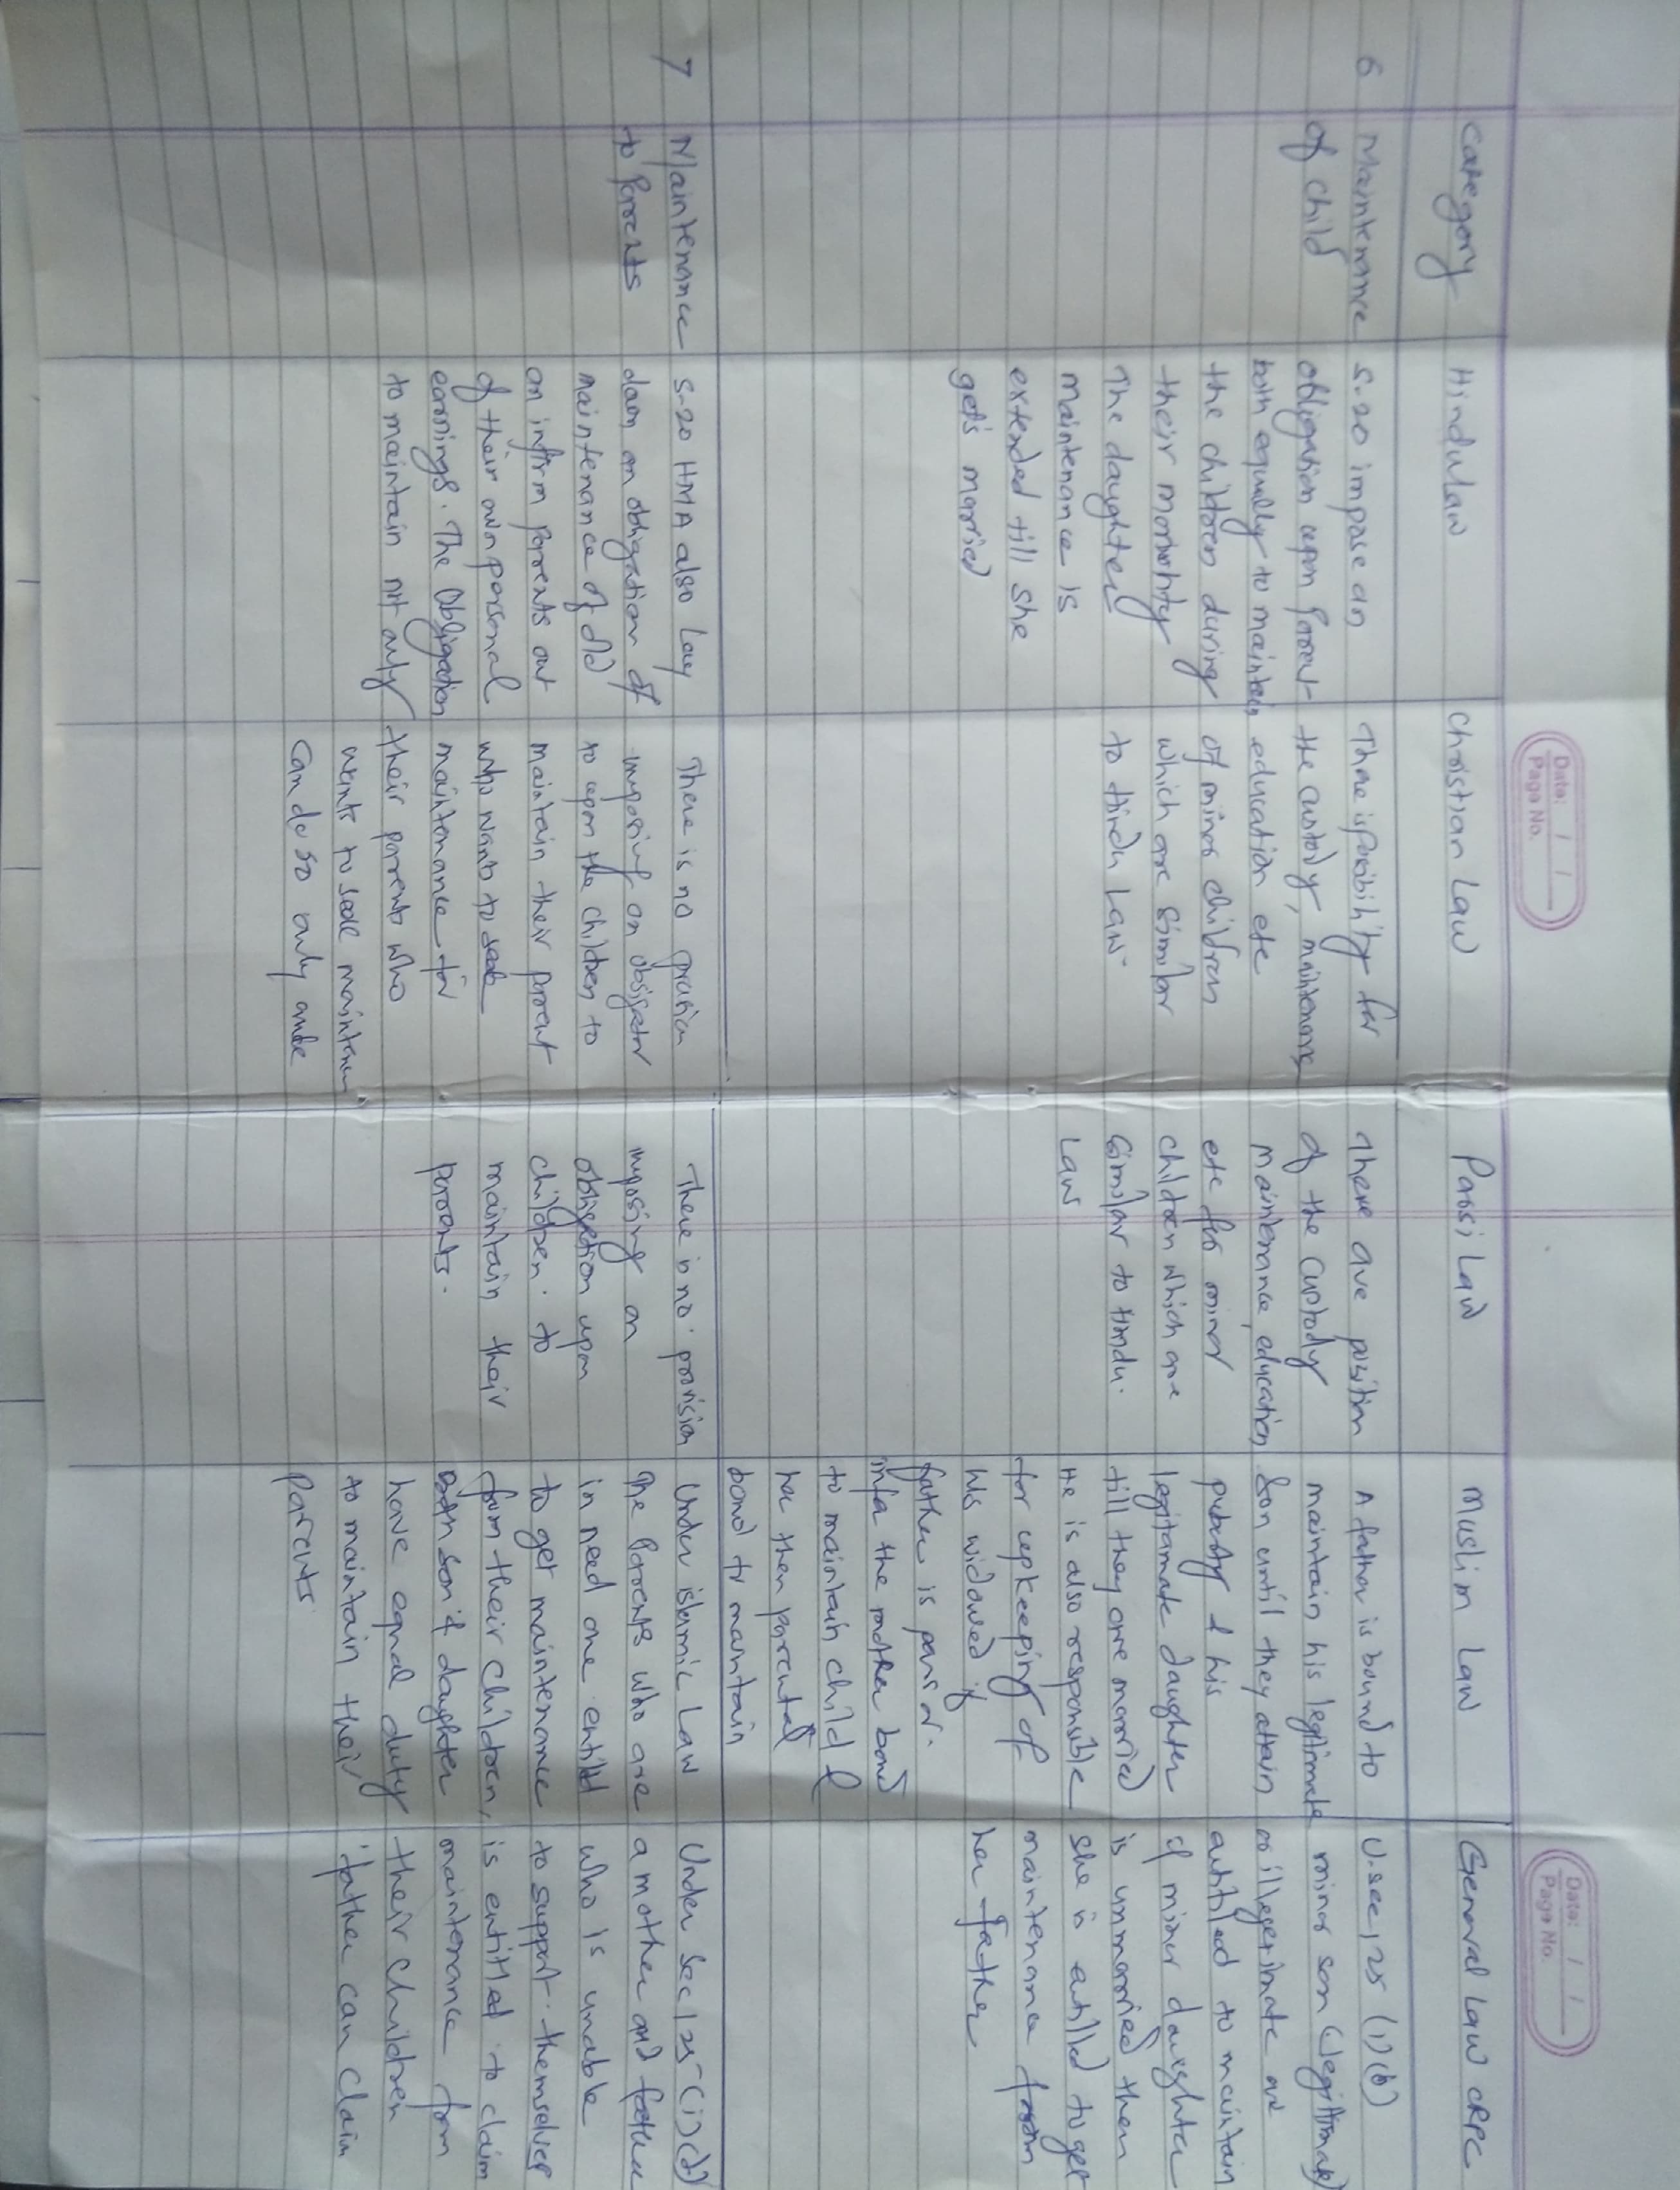 Date: / /
Page No.
Date: / /
Page No.
Category
Hindu Law
Christian Law
Parsi Law
Muslim Law
General Law CRPC
6
Maintenance
of child
S-20 impose an
obligation upon parent
both equally to maintain
the children during
their
The daughter
maintenance is
extended till she
get's married
There is for
the custody, maintenance,
education etc
of minor children
which are similar
to Hindu Law.
There are position
of the custody
maintenance, education
etc for minor
children which are
similar to Hindu.
Law
A father is bound to
maintain his legitimate
Son until they attain
puberty & his
legitamate daughter
till they are married
He is also responsible
for upkeeping of
his widowed if
father is
the mother bond
to maintain child &
then
bond to maintain
U.sec 125 (1)(b)
minor son (legitimate)
or are
to maintain
if minor daughter
is unmarried then
she is to get
maintenance from
her father
7
Maintenance
to Parents
S-20 HMA also Lay
down an obligation of
maintenance of old
an infirm parents out
of their own personal
earnings. The Obligation
to maintain not only
There is no
imposing on
to upon the children to
maintain their parent
who wants to seek
maintenance for
their parents who
wants to seek
Can do so only
There is no. provision
imposing an
obligation upon
children. to
maintain their
parents.
Under islamic Law
The Parents who are
in need one
to get maintenance
from their children,
Both son & daughter
have equal duty
to maintain their
parents.
Under Sec 125 (1)(d)
a mother and father
who is unable
to support themselves
is entitled to claim
maintenance from
their children
father can claim